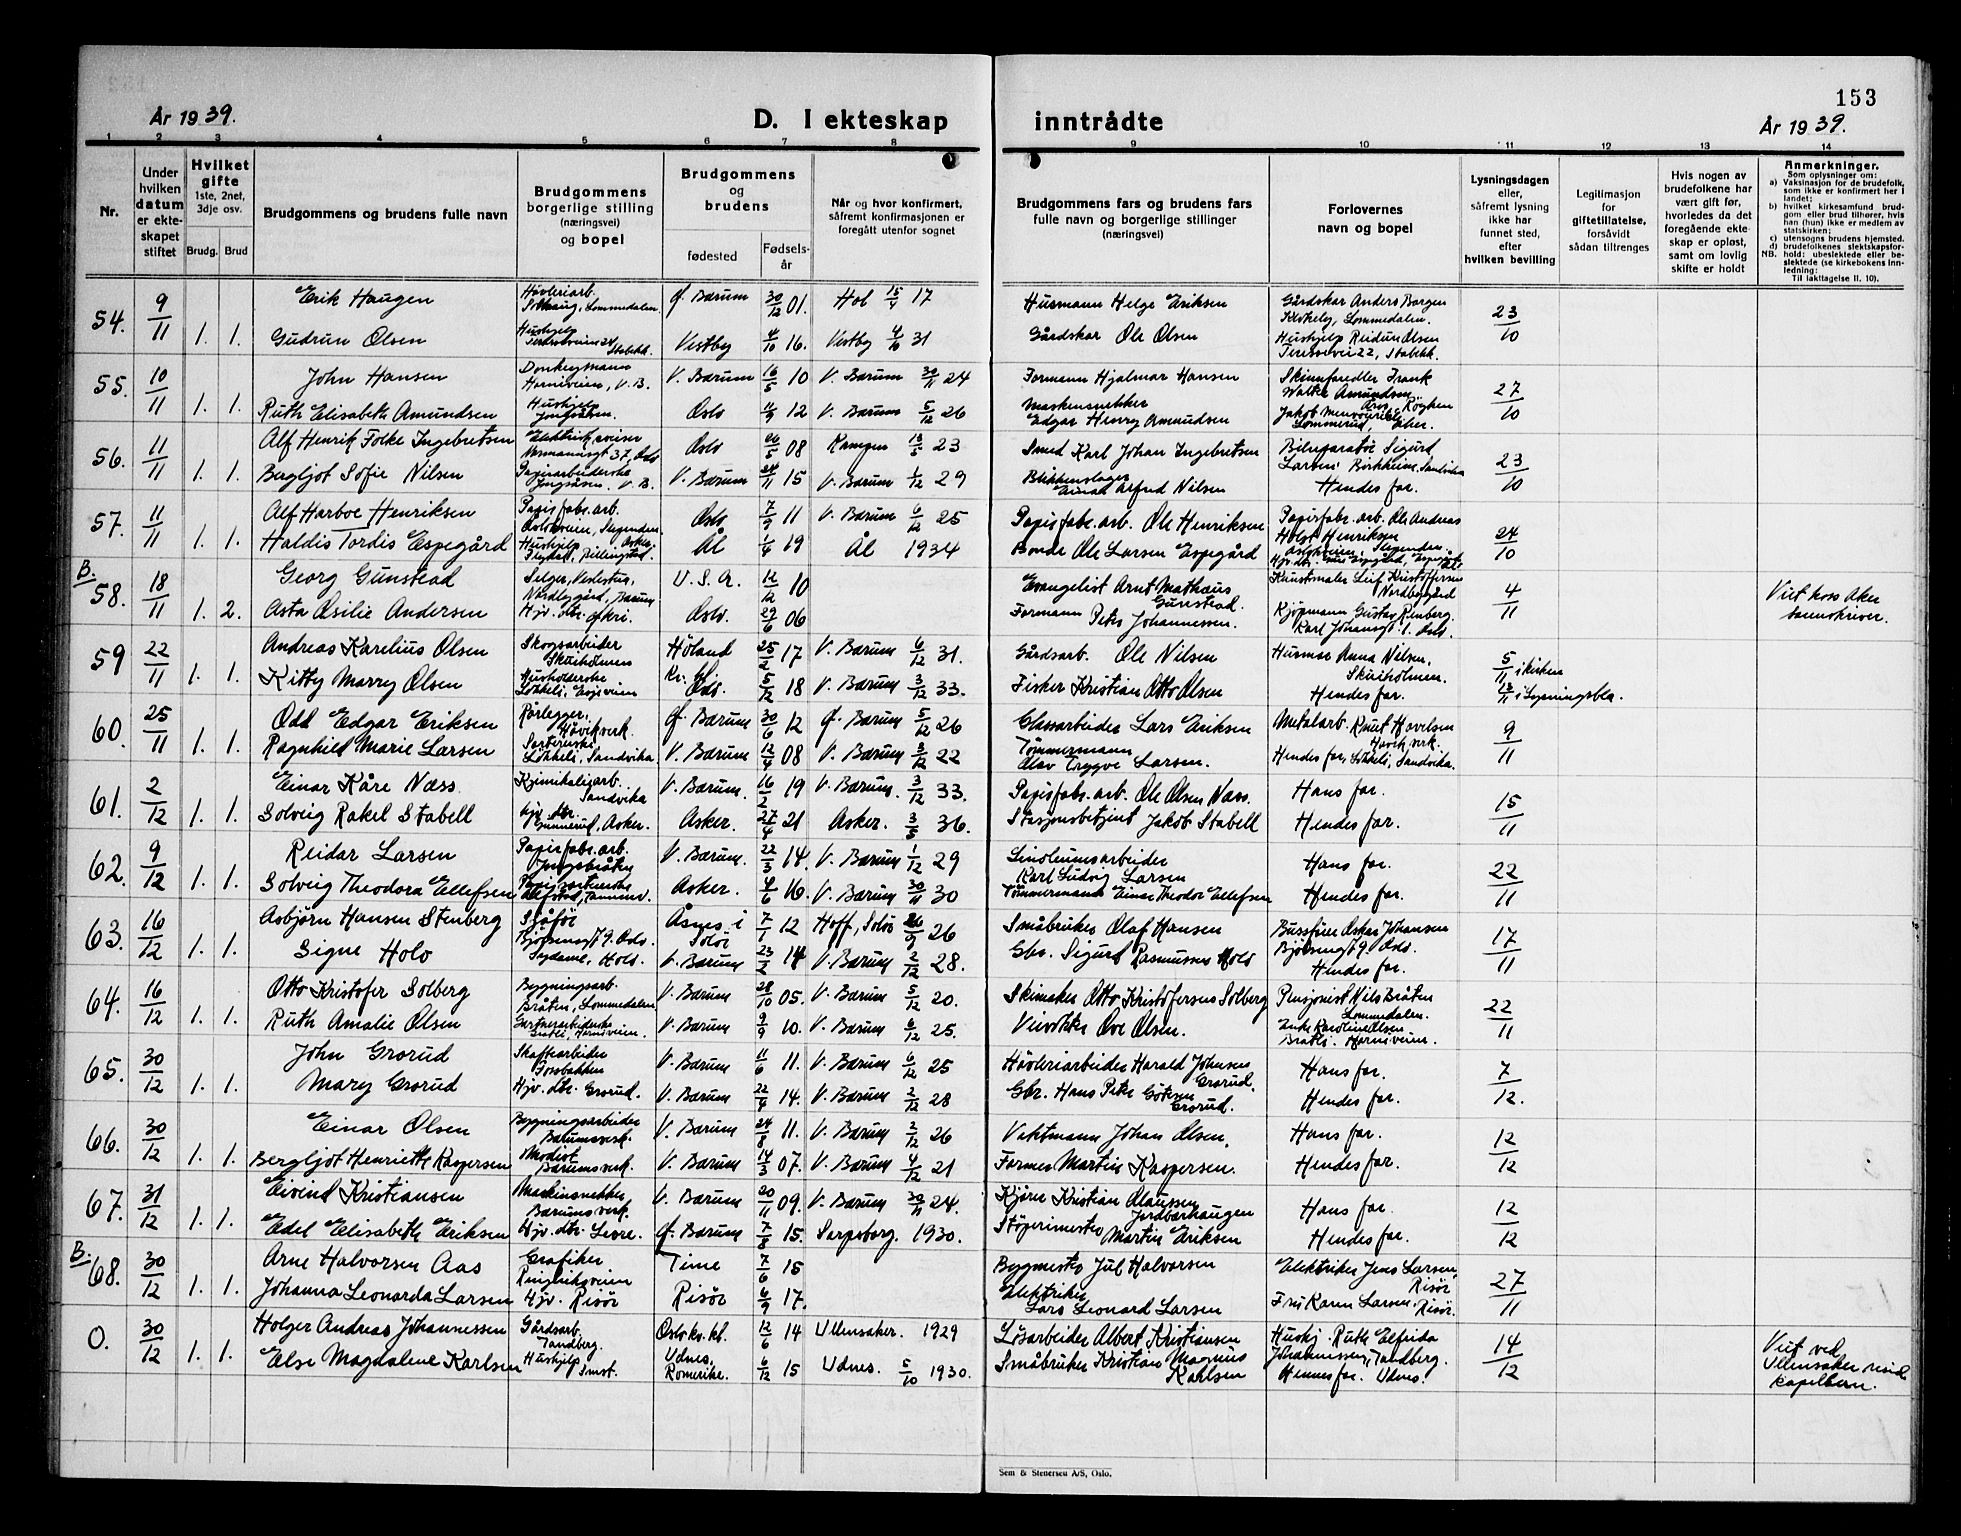 153
År 1939.
D. I ekteskap inntrådte
År 1939.
1 2 3 4 5 6 7 8 9 10 11 12 13 14
Nr.
Under hvilken datum er ekteskapet stiftet
Hvilket gifte 1ste, 2net, 3dje osv.
Brudg. Brud
Brudgommens og brudens fulle navn
Brudgommens borgerlige stilling (næringsvei) og bopel
Brudgommens og brudens
fødested
Fødselsår
Når og hvor konfirmert, såfremt konfirmasjonen er foregått utenfor sognet
Brudgommens fars og brudens fars fulle navn og borgerlige stillinger (næringsvei)
Forlovernes navn og bopel
Lysningsdagen eller, såfremt lysning ikke har funnet sted, efter hvilken bevilling
Legitimasjon for giftetillatelse, forsåvidt sådan tiltrenges
Hvis nogen av brudefolkene har vært gift før, hvorledes da det foregående ekteskap er opløst, samt om lovlig skifte er holdt
Anmerkninger.
Som oplysninger om:
a) Vaksinasjon for de brudefolk, som ikke er konfirmert her i landet;
b) hvilket kirkesamfund brudgom eller brud tilhører, hvis han (hun) ikke er medlem av statskirken;
c) utensogns brudens hjemsted.
d) brudefolkenes slektskapsforhold: ubeslektede eller beslektede (se kirkebokens innledning:
NB. Til Iakttagelse II. 10).
54. 9/11 Erik Haugen Høvleriarb. Lommedalen. Ø. Bærum 30/12 01. Hol 15/4 17 Husmann Helge Eriksen Gårdskar Anders Borgen Lommedalen. 23/10
1. 1. Gudrun Olsen Hushjelp Stabekk. Vestby 4/10 16. Vestby 4/10 31 Gårdskar Ole Olsen Hushjelp Reidun Olsen 22, Stabekk.
55. 10/11 John Hansen Donkeymann Horniveien, V. B. V. Bærum 16/5 10 V. Bærum 30/11 24 Formann Hjalmar Hansen Frank Walter Amundsen, Røyken 27/10
1. 1. Ruth Elisabeth Amundsen Hushjelp Oslo 4/9 12 V. Bærum 5/12 26 Maskinsnekker Edgar Henry Amundsen Jakob
56. 11/11 Alf Henrik Folke Ingebretsen 37, Oslo Oslo 26/5 08 Kampen 13/5 23 Smed Karl Johan Ingebretsen Bilreparatør Sigurd Larsen, Sandvika 23/10
1. 1. Bergljot Sofie Nilsen Papirarbeiderske V. B. V. Bærum 24/11 15 V. Bærum 1/12 29 Blikkenslager Einar Alfred Nilsen Hendes far.
57. 11/11 Alf Harboe Henriksen Papirfabr. arb. Osloveien, Slependen Oslo 7/9 11 V. Bærum 6/12 25 Papirfabr. arb. Ole Henriksen Papirfabr. arb. Ole Andreas Holst Henriksen Slependen 24/10
1. 1. Haldis Tordis Espegård Hushjelp Asker. Ål 1/4 19 Ål 1934 Bonde Ole Larsen Espegård
B. 58. 18/11 Georg Gunstead Selger, Bærum U. S. A. 12/12 10 Evangelist Arnt Mathæus Gunstead. Kunstmaler Leif Kristoffersen 4/11 Viet hos Aker sorenskriver.
1. 2. Asta Osilie Andersen Hjv. dtr. Oslo. 29/6 06 Formann Peter Johannessen. Kjøpmann Gustav Renberg. Karl Johansgt. 1. Oslo.
59 22/11 Andreas Karelius Olsen Skogsarbeider Skuiholmen Høland 25/2 17 V. Bærum 6/12 31. Gårdsarb. Ole Nilsen Husmor Anna Nilsen, Skuiholmen. 5/11 i kirken
1. 1. Kitty Marry Olsen Husholderske Løkkeli, Oslo. 5/12 18 V. Bærum 3/12 33. Fisker Kristian Otto Olsen Hendes far. i Lysningsbla.
60. 25/11 Odd Edgar Eriksen Rørlegger, Høvik verk. Ø. Bærum 30/6 12 Ø. Bærum 5/12 26 Glassarbeider Lars Eriksen Metalarb. Knut Høvik verk. 9/11
1. 1. Ragnhild Marie Larsen Løkkeli, Sandvika V. Bærum 12/4 08 V. Bærum 3/12 22 Tømmermann Olav Trygve Larsen. Hendes far, Løkkeli, Sandvika.
61. 2/12 Einar Kåre Næss. Kjemikaliearb. Sandvika V. Bærum. 16/2 19 V. Bærum. 3/12 33. Papirfabr. arb. Ole Olsen Næss. Hans far. 15/11
1. 1. Solveig Rakel Stabell Hjv. dtr. Asker. Asker. 27/4 21 Asker. 3/5 36. Stasjonsbetjent Jakob Stabell Hendes far.
62. 9/12 Reidar Larsen Papirfabr. arb. V. Bærum. 22/3 14. V. Bærum 1/12 29 Linoleumsarbeider Karl Ludvig Larsen Hans far. 22/11
1. 1. Solveig Theodora Ellefsen Asker. 4/6 16. V. Bærum 30/11 30 Tømmermann Einar Theodor Ellefsen Hendes far.
63. 16/12 Asbjørn Hansen Stenberg Sjåfør 9. Oslo. Åsnes i Solør 7/1 12 Hoff, Solør 26/9 26 Småbruker Olaf Hansen Bussfører Oskar Johansen Bjølsengt 9. Oslo. 17/11
1. 1. Signe Holo Sydame, Holo. V. Bærum 23/2 14 V. Bærum 2/12 28. Gbr. Sigurd Rasmussen Holo Hendes far.
64. 16/12 Otto Kristofer Solberg Bygningsarb. Bråten, Lommedalen V. Bærum 28/10 05. V. Bærum 5/12 20. Skimaker Otto Kristofersen Solberg Pensjonist Nils Bråten Lommedalen. 22/11
1. 1. Ruth Amalie Olsen Gartnerarbeiderske Horniveien. V. Bærum 9/9 10. V. Bærum 6/12 25. Veivokter Ove Olsen. Enke Karoline Olsen Horniveien.
65. 30/12 John Grorud V. Bærum 11/6 11. V. Bærum 6/12 25 Høvleriarbeider Harald Johansen Grorud. Hans far. 7/12.
1. 1. Mary Grorud Hjv. dtr. Grorud. V. Bærum 22/4 14. V. Bærum 2/12 28 Gbr. Hans Peter Grorud. Hendes far.
66. 30/12 Einar Olsen Bygningsarbeider Bærumsverk. V. Bærum 24/8 11. V. Bærum 2/12 26 Vaktmann Johan Olsen. Hans far. 12/12
1. 1. Bergljot Henriette Kaspersen Modist Bærumsverk. V. Bærum 14/3 07. V. Bærum 4/12 21 Former Martin Kaspersen. Hendes far.
67. 31/12 Eivind Kristiansen Maskinsnekker Bærumsverk. V. Bærum 20/11 09. V. Bærum 30/11 24. Kjører Kristian Olaussen Jordbærhaugen Hans far. 12/12
1. 1. Edel Elisabeth Eriksen Hjv. dtr. Levre. Ø. Bærum 7/8 15. Sarpsborg. 1930. Støperimester Martin Eriksen Hendes far.
B. 68. 30/12 Arne Halvorsen Aas Grafiker Ringeriksveien Time 7/6 15 Byggmester Jul Halvorsen Elektriker Jens Larsen, Risør 27/11
1. 1. Johanna Leonarda Larsen Hjv. Risør Risør 6/9 17. Elektriker Lars Leonard Larsen Frk Karen Larsen. Risør.
O. 30/12 Holger Andreas Johannessen Gårdsarb. Tandberg. Oslo kv. kl. 12/6 14 Ullensaker. 1929 Løsarbeider Albert Kristiansen Hushj. Ruth Elfrida Johannessen, Tandberg. 14/12 Viet ved Ullensaker resid. kapellan.
1. 1. Else Magdalene Karlsen Hushjelp Udnes, Romerike. 6/12 15 Udnes. 5/10 1930. Småbruker Kristian Magnus Karlsen Hennes far. Udnes.
Sem & Stenersen A/S, Oslo.